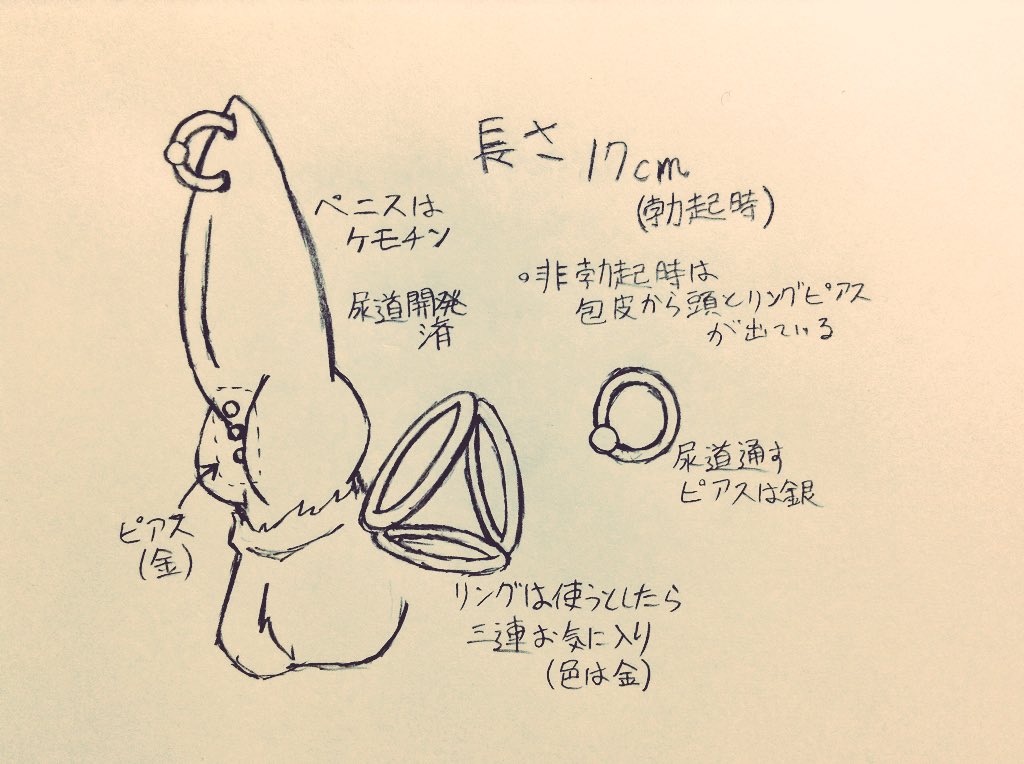 長さ 17cm
(勃起時)
ペニスは
ケモチン
尿道開発
済
。非勃起時は
包皮から頭とリングピアス
が出ている
尿道通す
ピアスは銀
ピアス
(金)
リングは使うとしたら
三連お気に入り
(色は金)